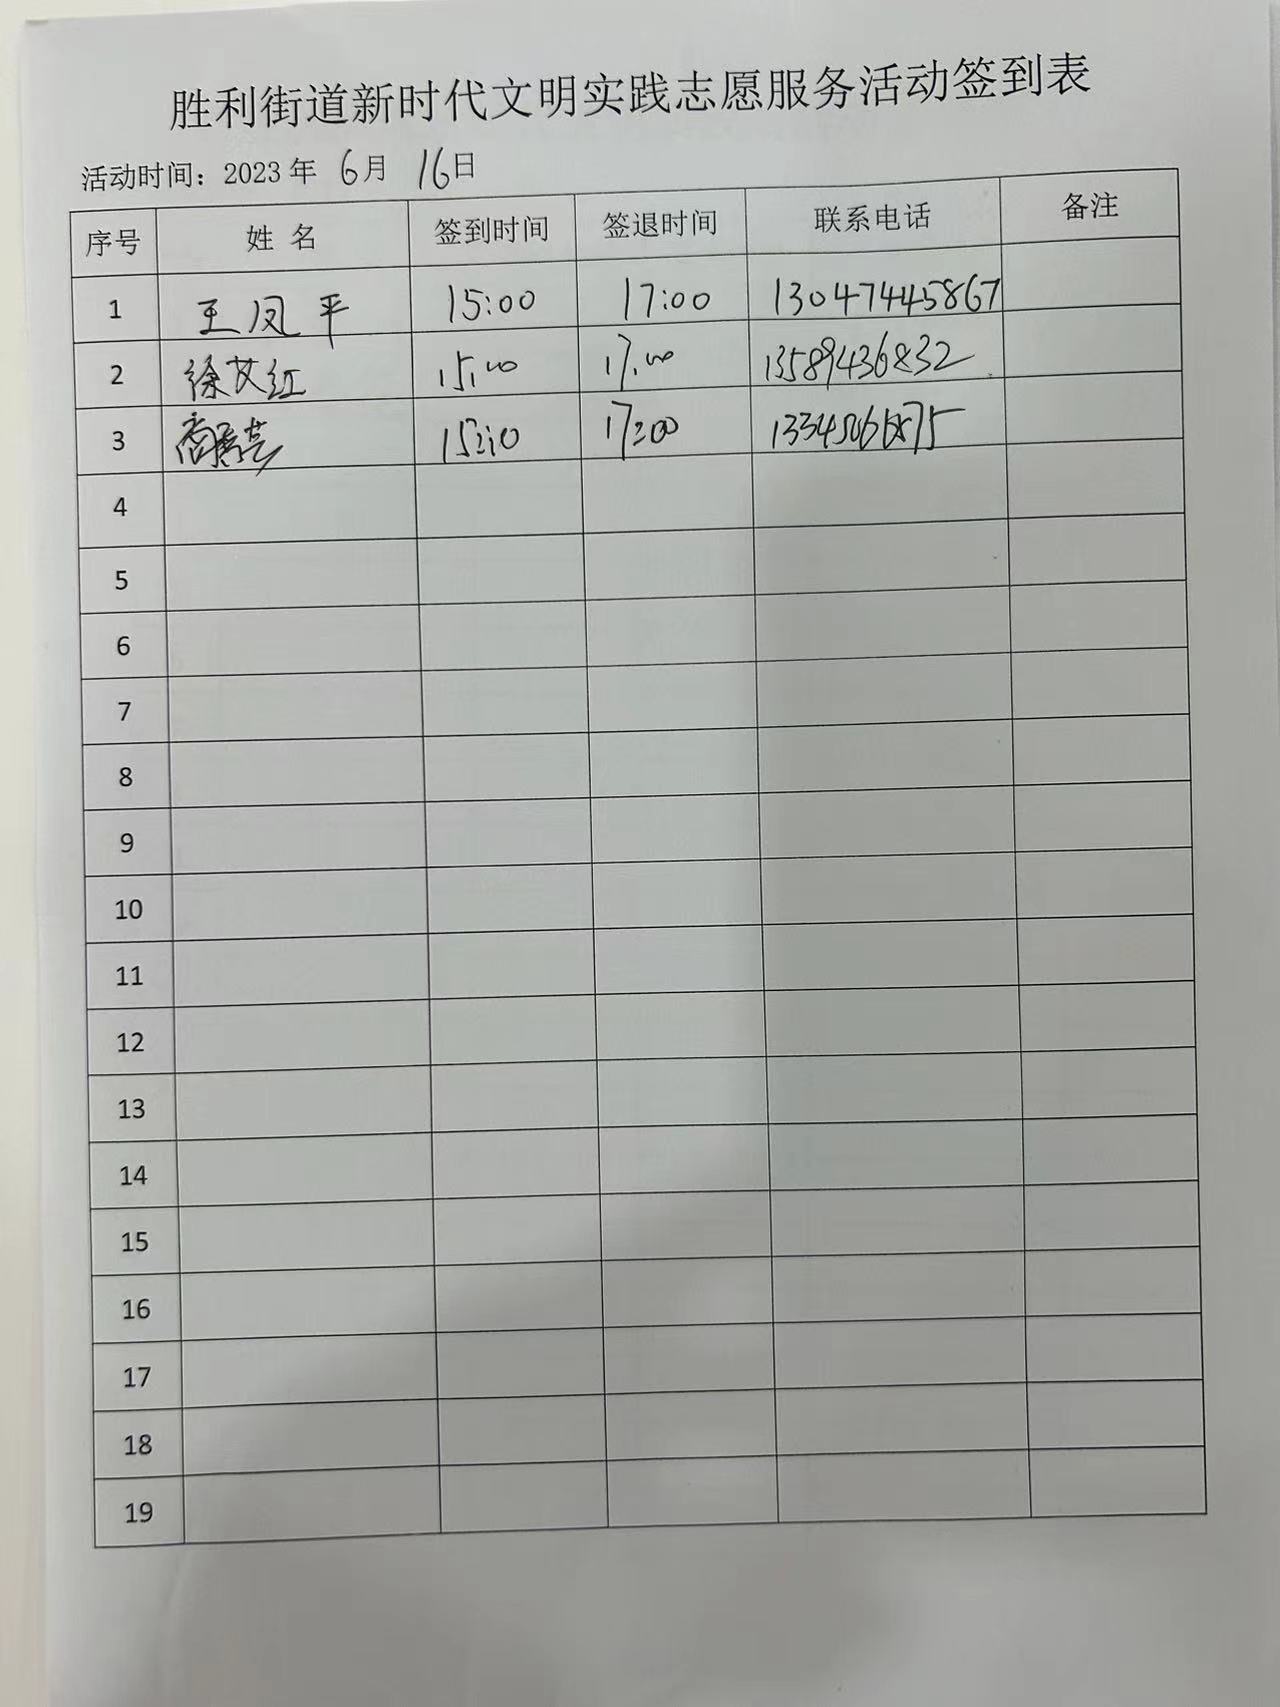 胜利街道新时代文明实践志愿服务活动签到表
活动时间：2023 年 6月 16日
序号 姓 名 签到时间 签退时间 联系电话 备注
1 王凤平 15:00 17:00 13047445867
2 徐艾红 15:00 17:00 13589436832
3 17:00
4
5
6
7
8
9
10
11
12
13
14
15
16
17
18
19